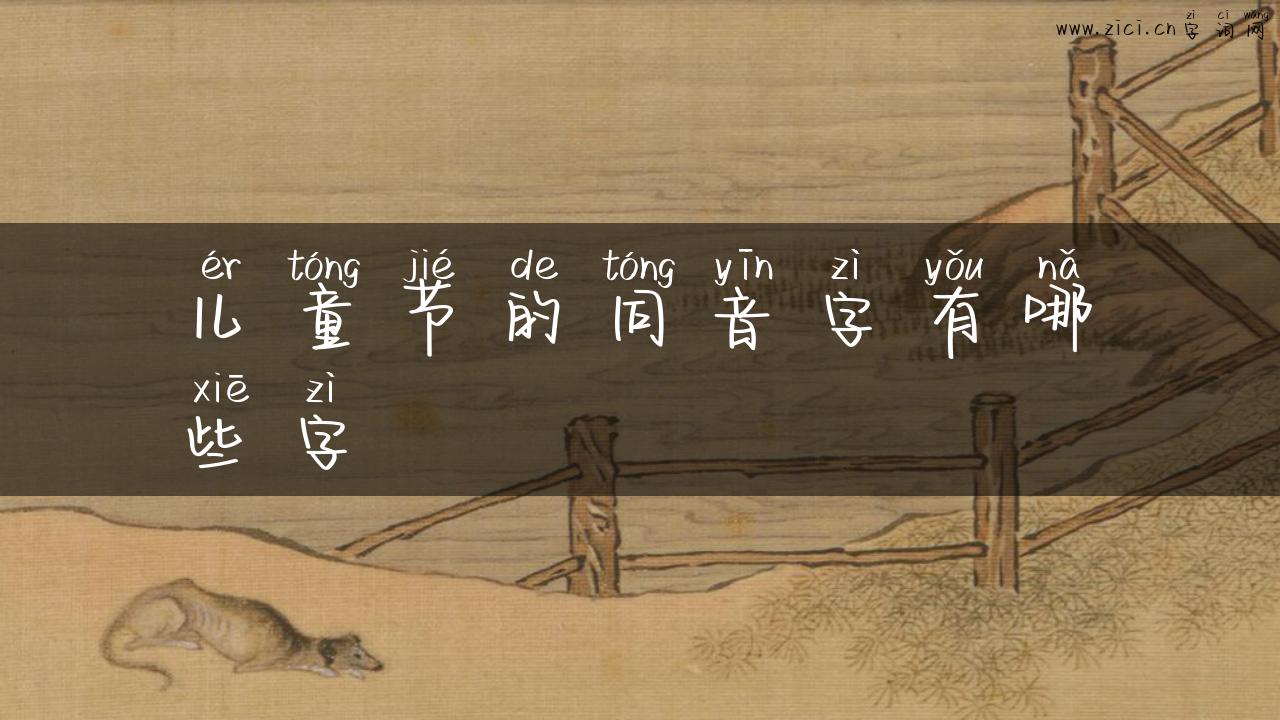 zì cí wǎng
www.zici.cn字词网
ér tóng jié de tóng yīn zì yǒu nǎ
儿童节的同音字有哪
xiē zì
些字